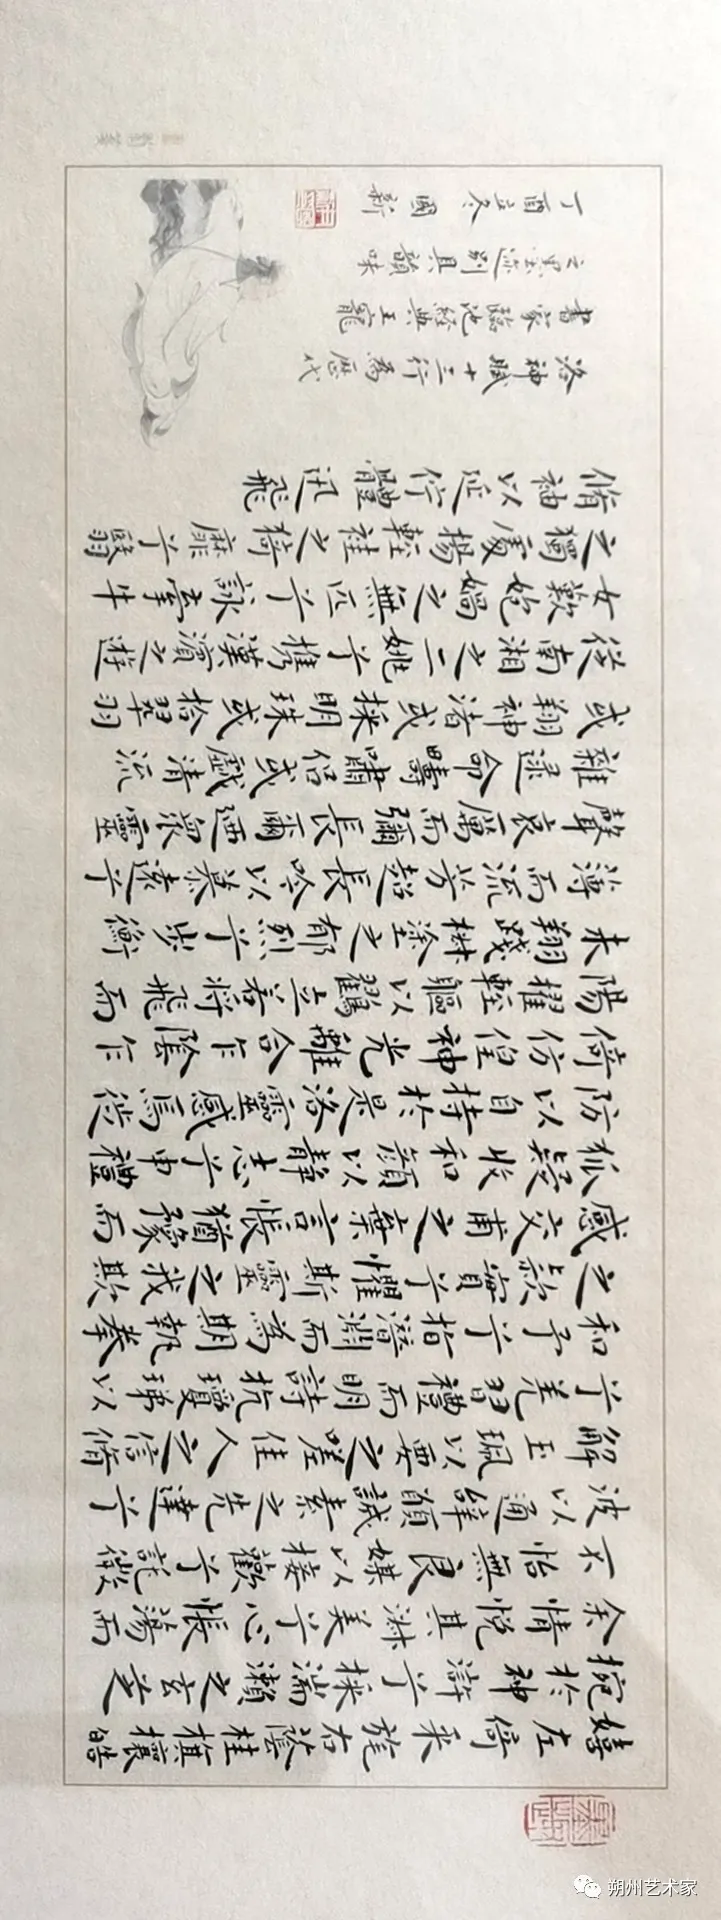 嬉左倚采旄右蔭桂旗攘皓
捥於神滸兮採湍瀨之玄芝
余情悅其淋美兮心悵蕩而
不怡無良媒以接歡兮託微
波以通辭願誠素之先達兮
解玉珮以要之嗟佳人之信脩
兮羌習禮而明詩抗瓊珶以
和予兮指潛淵而為期執拳
之款實兮懼斯靈之我欺
感交甫之棄言悵猶豫而
狐疑收和顏以靜志兮申禮
防以自持於是洛靈感焉徙
倚仿偟神光離合乍陰乍
陽擢輕軀以鶴立若將飛而
未翔踐椒塗之郁烈兮步衡
薄而流芳超長吟以慕遠兮
聲哀厲而彌長爾迺眾靈
雜遝命疇嘯侶或戲清流
或翔神渚或採明珠或拾翠羽
從南湘之二姚兮攜漢濱之遊
女歎匏媧之無匹兮詠牽牛
之獨處揚輕袿之猗靡兮翳
脩袖以延佇體迅飛
洛神賦十三行為歷代
書家臨池經典王寵
之墨迹別具韻味
丁酉立冬國新
朔州艺术家